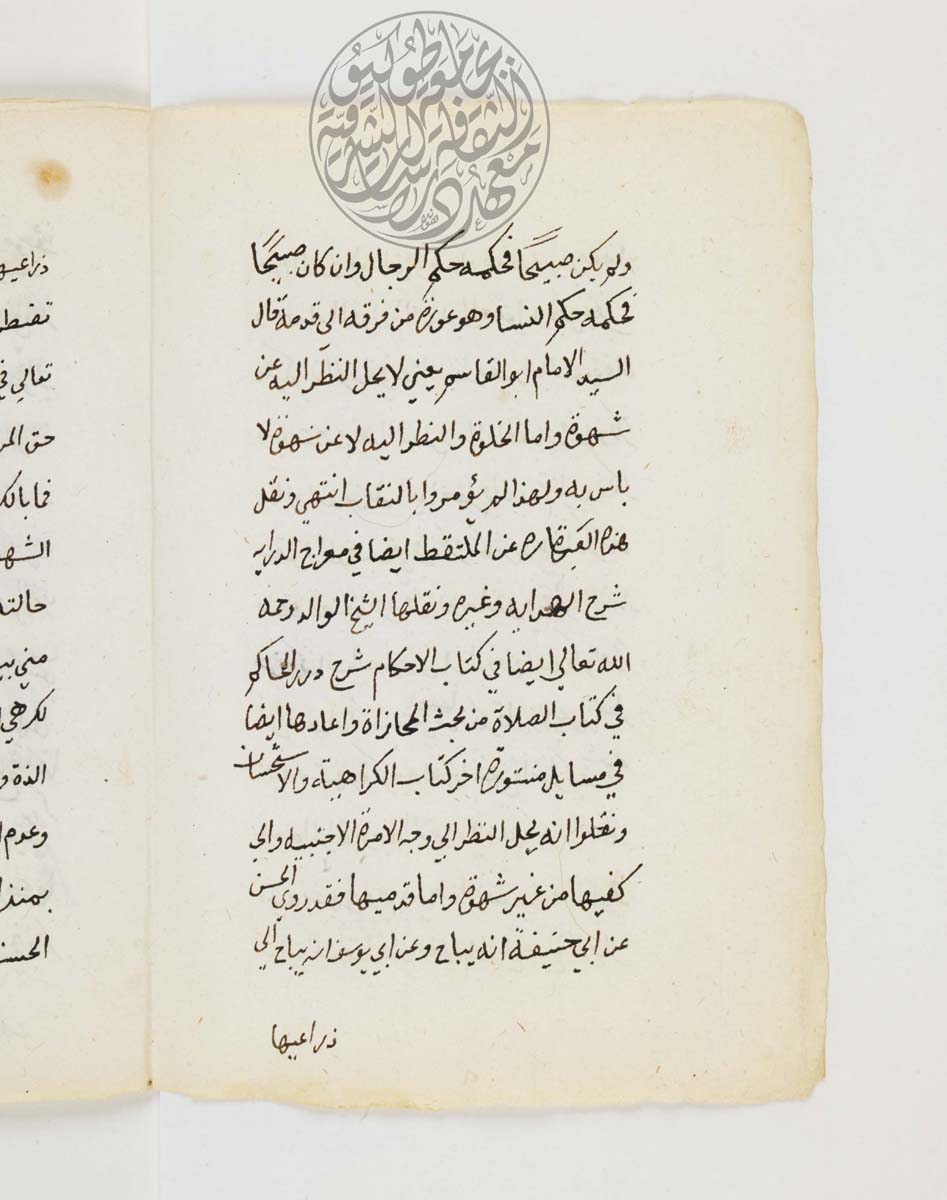 ولم يكن صبيحًا فحكمه حكم الرجال وان كان صبيحًا
فحكمه حكم النسا وهو عورة من فرقه الي قدمه قال
السيد الامام ابو القاسم يعني لا يحل النظر اليه عن
شهوة واما الخلوة والنظر اليه لا عن شهوة لا
باس به ولهذا لم يؤمروا بالنقاب انتهي ونقل
هذه العبارة عن الملتقط ايضا في معراج الدرايه
شرح الهدايه وغيره ونقلها الشيخ الوالد رحمه
الله تعالي ايضا في كتاب الاحكام شرح درر الحاكم
في كتاب الصلاة من بحث المحازاة واعادها ايضا
في مسايل منثورة اخر كتاب الكراهية والاستحسان
ونقلوا انه يحل النظر الي وجه الامرة الاجنبيه والي
كفيها من غير شهوة واما قدميها فقد روي الحسن
عن ابي حنيفة انه يباح وعن ابي يوسف انه يباح الي
ذراعيها
ذراعيها
تعالي
حق المر
حالته
الحسن
جامعة طوكيو
معهد دراسات الثقافة الشرقية